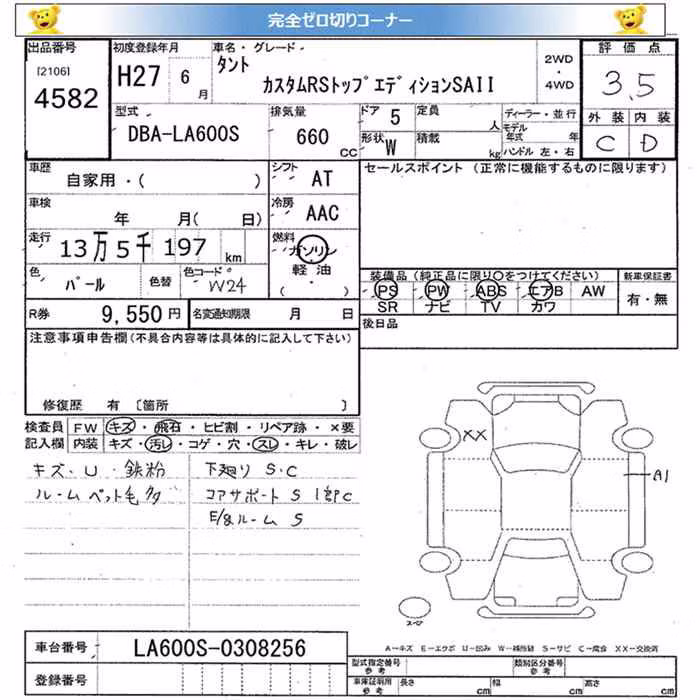 完全ゼロ切りコーナー
出品番号 初度登録年月 車名・グレード 評価点
[2106] 4582 H27 6月 タント カスタムRSトップエディションSAII 2WD・4WD 3.5
型式 排気量 ドア 定員 ディーラー・並行 外装 内装
DBA-LA600S 660 CC 5 人 モデル年式 年 C D
形状 W 積載 kg ハンドル 左・右
車歴 シフト セールスポイント (正常に機能するものに限ります)
自家用・( ) AT
車検 冷房
年 月( 日) AAC
走行 燃料
13万5千197 km ガソリン
色 色替 色コード 軽油
パール W24 ( ・ )
装備品(純正品に限り○をつけてください) 新車保証書
PS PW ABS エアB AW 有・無
SR ナビ TV カワ
R券 9,550円 名変通知期限 月 日
後日品
注意事項申告欄(不具合内容等は具体的に記入して下さい)
修復歴 有 〔箇所 〕
検査員 FW キズ・飛石・ヒビ割・リペア跡・×要
記入欄 内装 キズ・汚レ・コゲ・穴・スレ・キレ・破レ
キズ、U 鉄粉 下廻り S、C
ルーム ペット毛多 コアサポート S 1部C
E/gルーム S
XX
A1
スペア
A-キズ E-エクボ U-凹み W-補修跡 S-サビ C-腐食 XX-交換済
車台番号 LA600S-0308256
登録番号
型式指定番号 参考 類別区分番号 参考
車庫証明用 参考 長さ cm 幅 cm 高さ cm